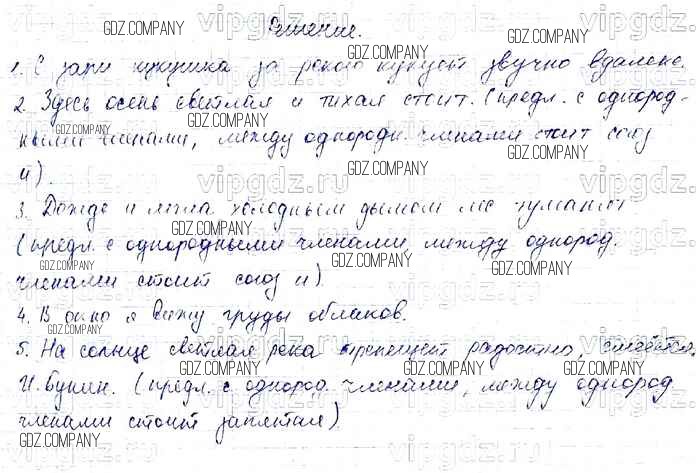 Решение.
1. С зари кукушка за рекою кукует звучно вдалеке.
2. Здесь осень светлая и тихая стоит. (предл. с однород-
ными членами, между однородн. членами стоит союз
и).
3. Дожди и мгла холодным дымом лес туманят
(предл. с однородными членами, между однород.
членами стоит союз и).
4. В окно я вижу груды облаков.
5. На солнце светлая река трепещет радостно, смеётся.
И. Бунин. (предл. с однород. членами, между однород.
членами стоит запятая).